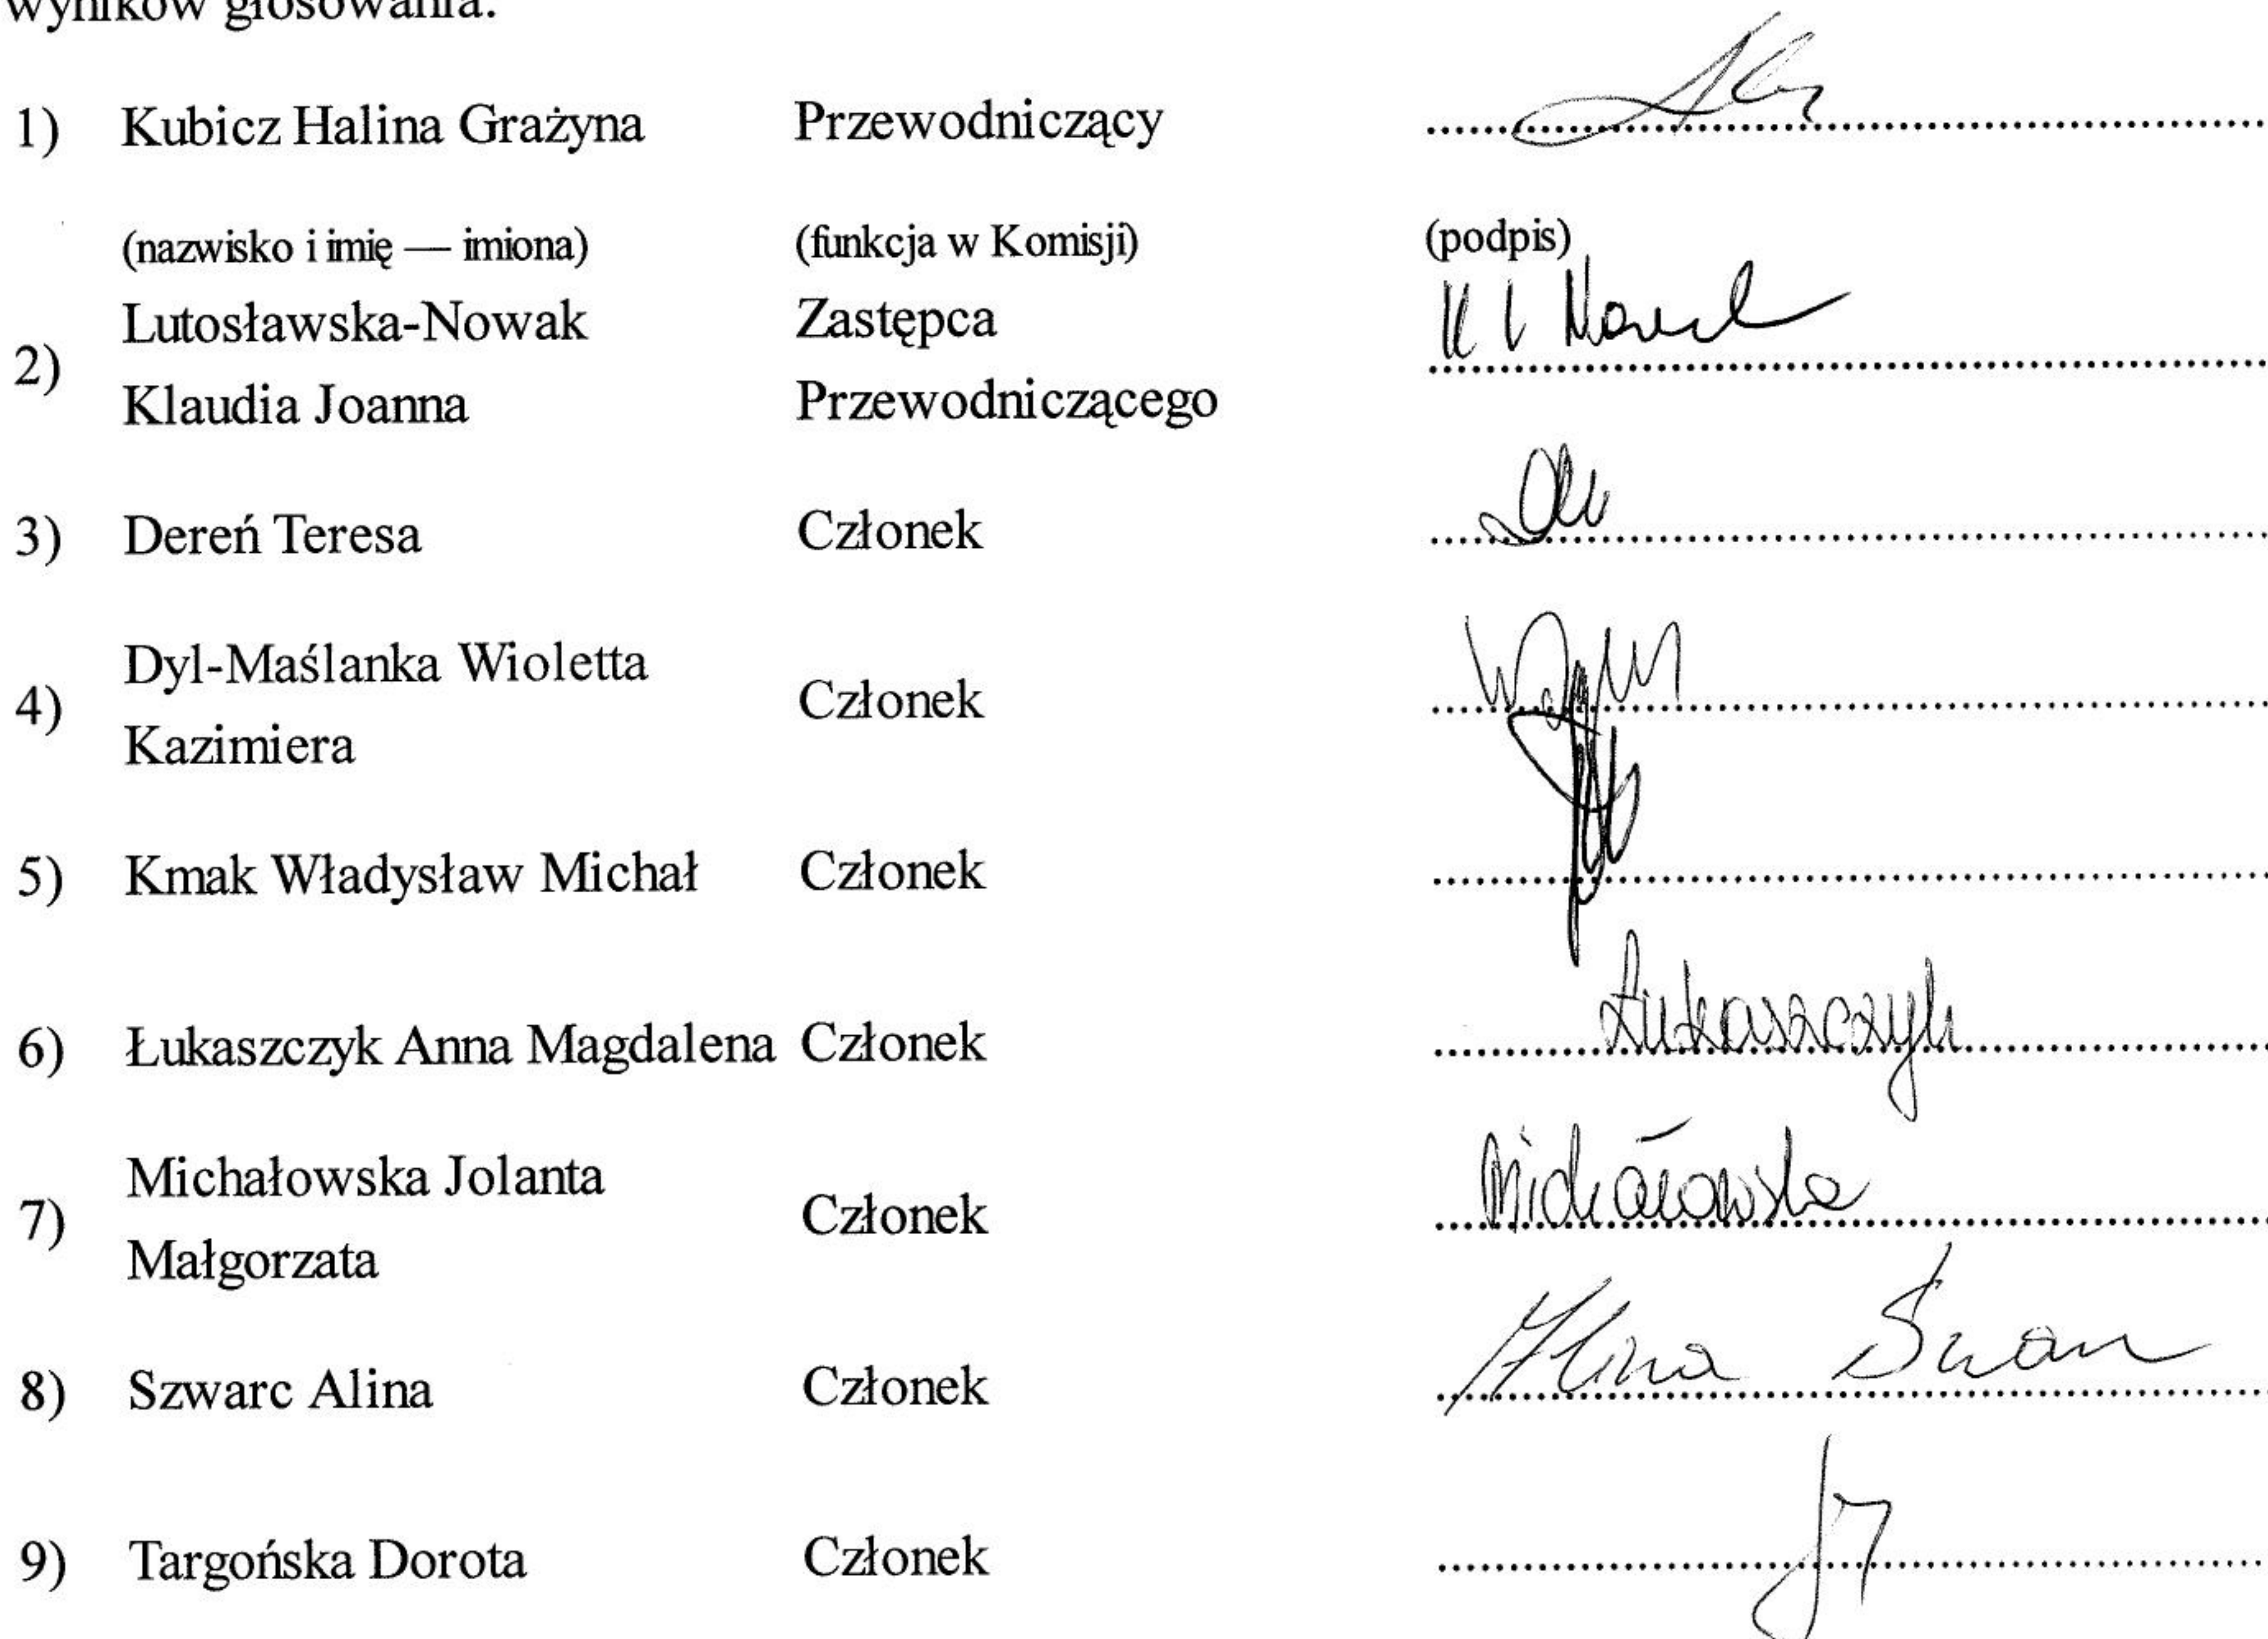 wyników głosowania.
1) Kubicz Halina Grażyna Przewodniczący
(nazwisko i imię — imiona) (funkcja w Komisji) (podpis)
Lutosławska-Nowak Zastępca
2)
Klaudia Joanna Przewodniczącego
3) Dereń Teresa Członek
Dyl-Maślanka Wioletta
4) Członek
Kazimiera
5) Kmak Władysław Michał Członek
6) Łukaszczyk Anna Magdalena Członek Łukaszczyk
Michałowska Jolanta
7) Członek Michałowska
Małgorzata
8) Szwarc Alina Członek Alina
9) Targońska Dorota Członek